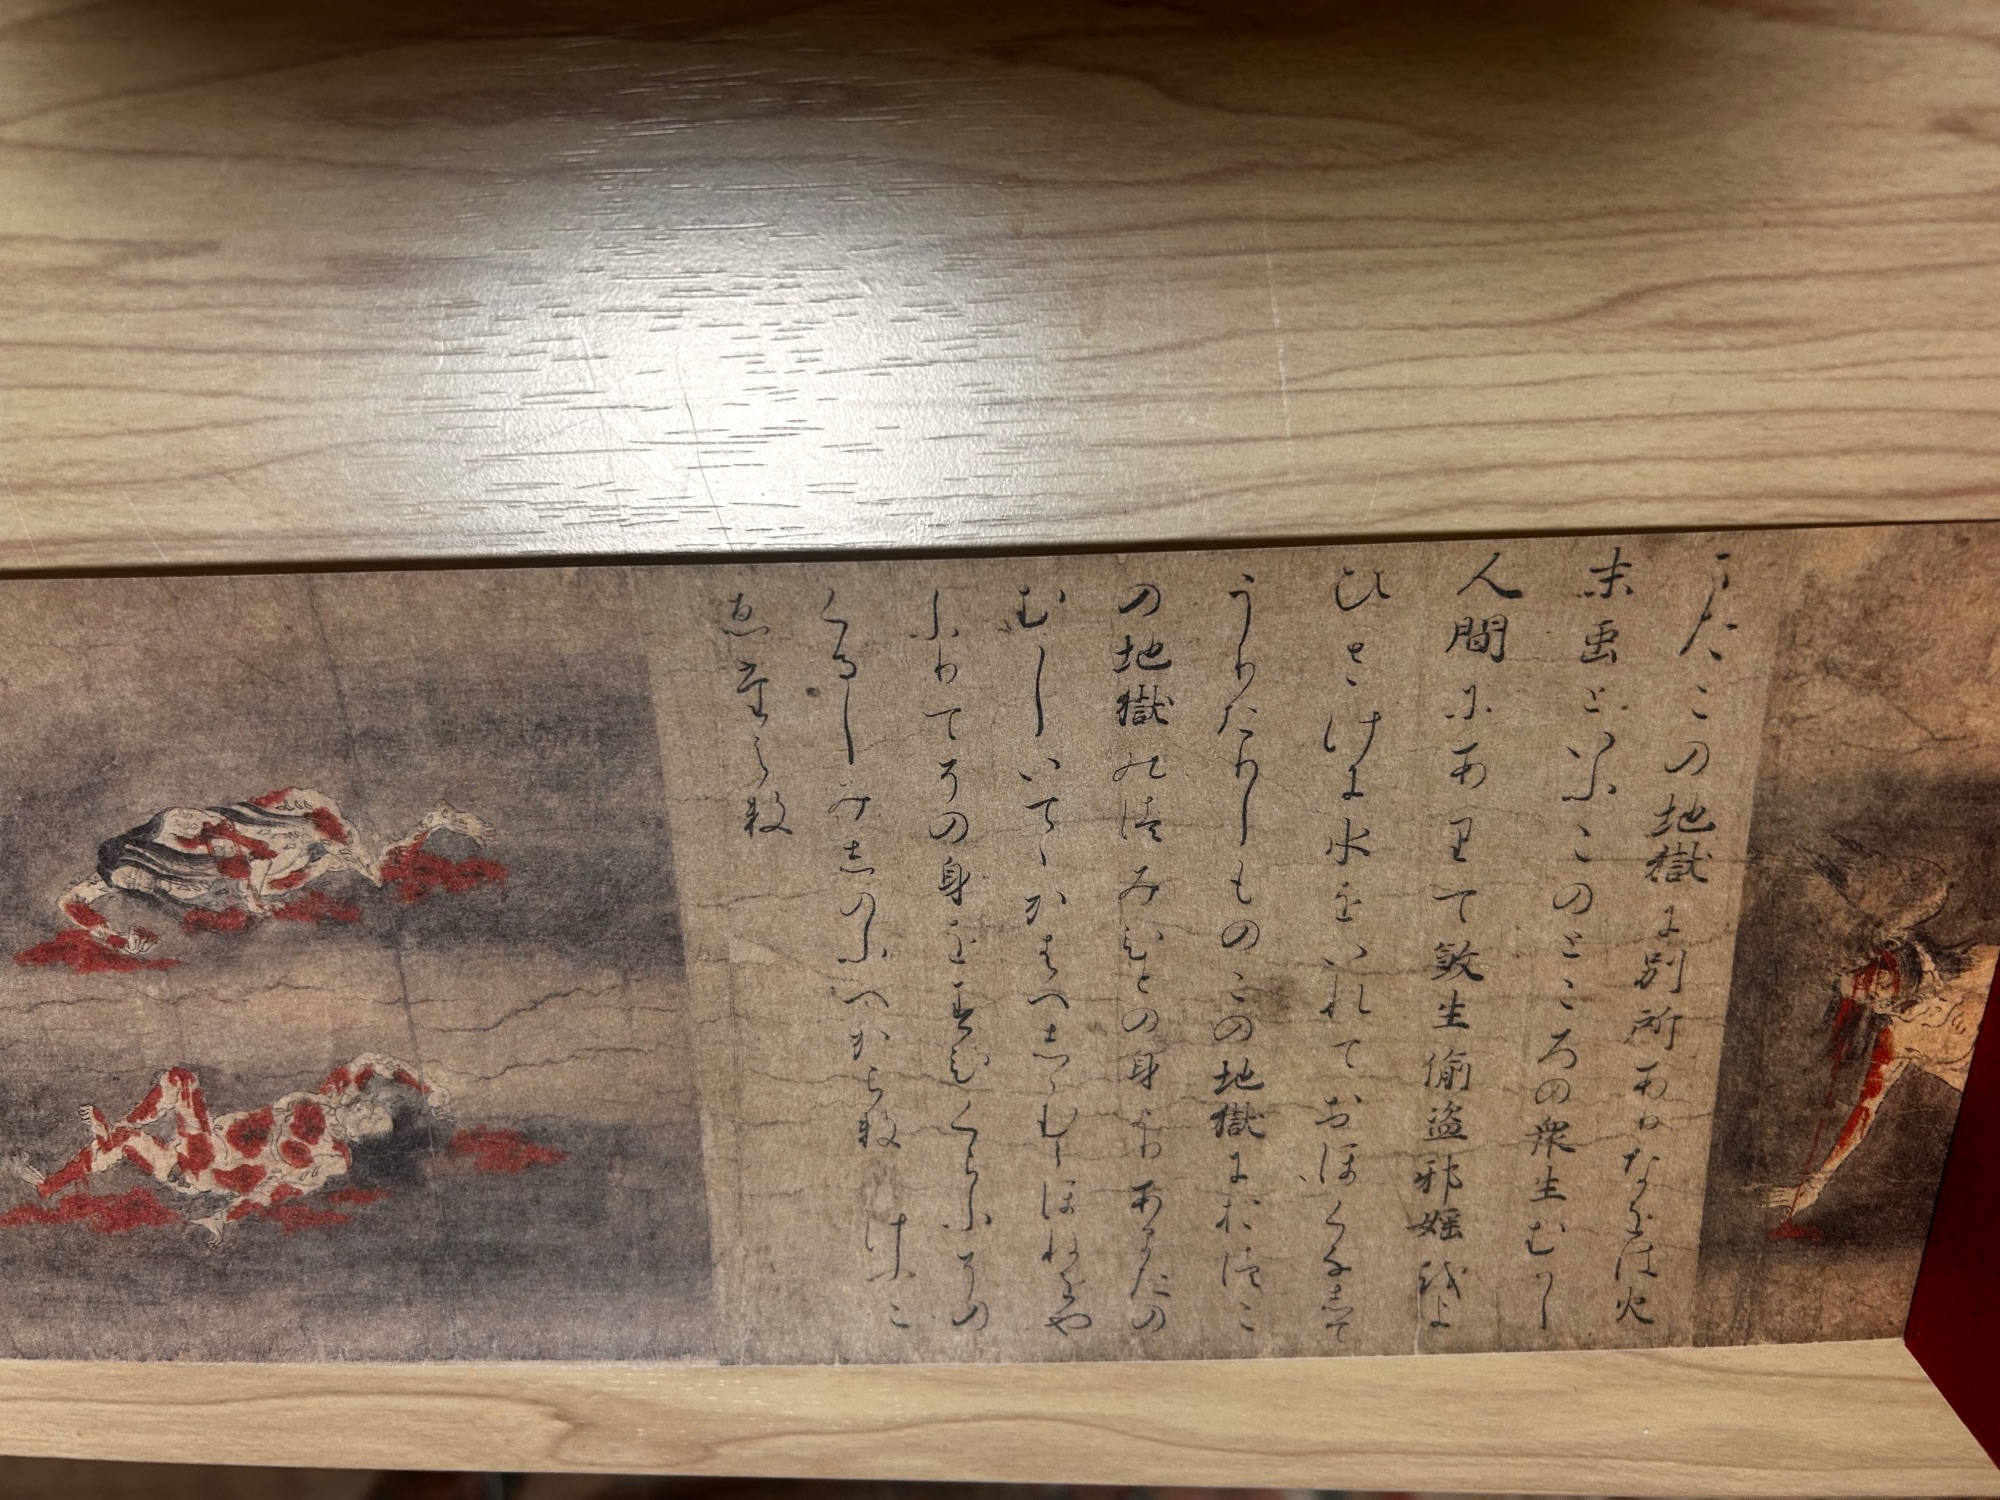 またこの地獄に別所ありなをは火
末虫といふこのところの衆生むかし
人間にありて殺生偸盗邪婬或は
ひさけに水をいれておほくなして
うりたりしものこの地獄におつこ
の地獄のつみひとの身よりあまたの
むしいてゝかはへしゝむらほねをや
ふりてその身をすひくらふその
くるしみしのふへからす